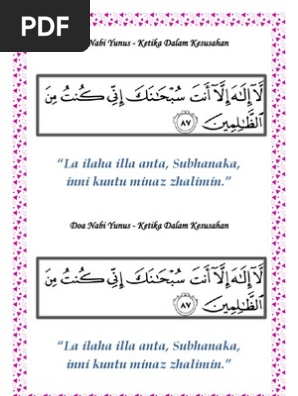 PDF
Nabi Yunus - Ketika Dalam Kesusahan
لَّآ إِلَٰهَ إِلَّآ أَنتَ سُبْحَٰنَكَ إِنِّى كُنتُ مِنَ
ٱلظَّٰلِمِينَ ٨٧
“La ilaha illa anta, Subhanaka,
inni kuntu minaz zhalimin.”
Doa Nabi Yunus - Ketika Dalam Kesusahan
لَّآ إِلَٰهَ إِلَّآ أَنتَ سُبْحَٰنَكَ إِنِّى كُنتُ مِنَ
ٱلظَّٰلِمِينَ ٨٧
“La ilaha illa anta, Subhanaka,
inni kuntu minaz zhalimin.”